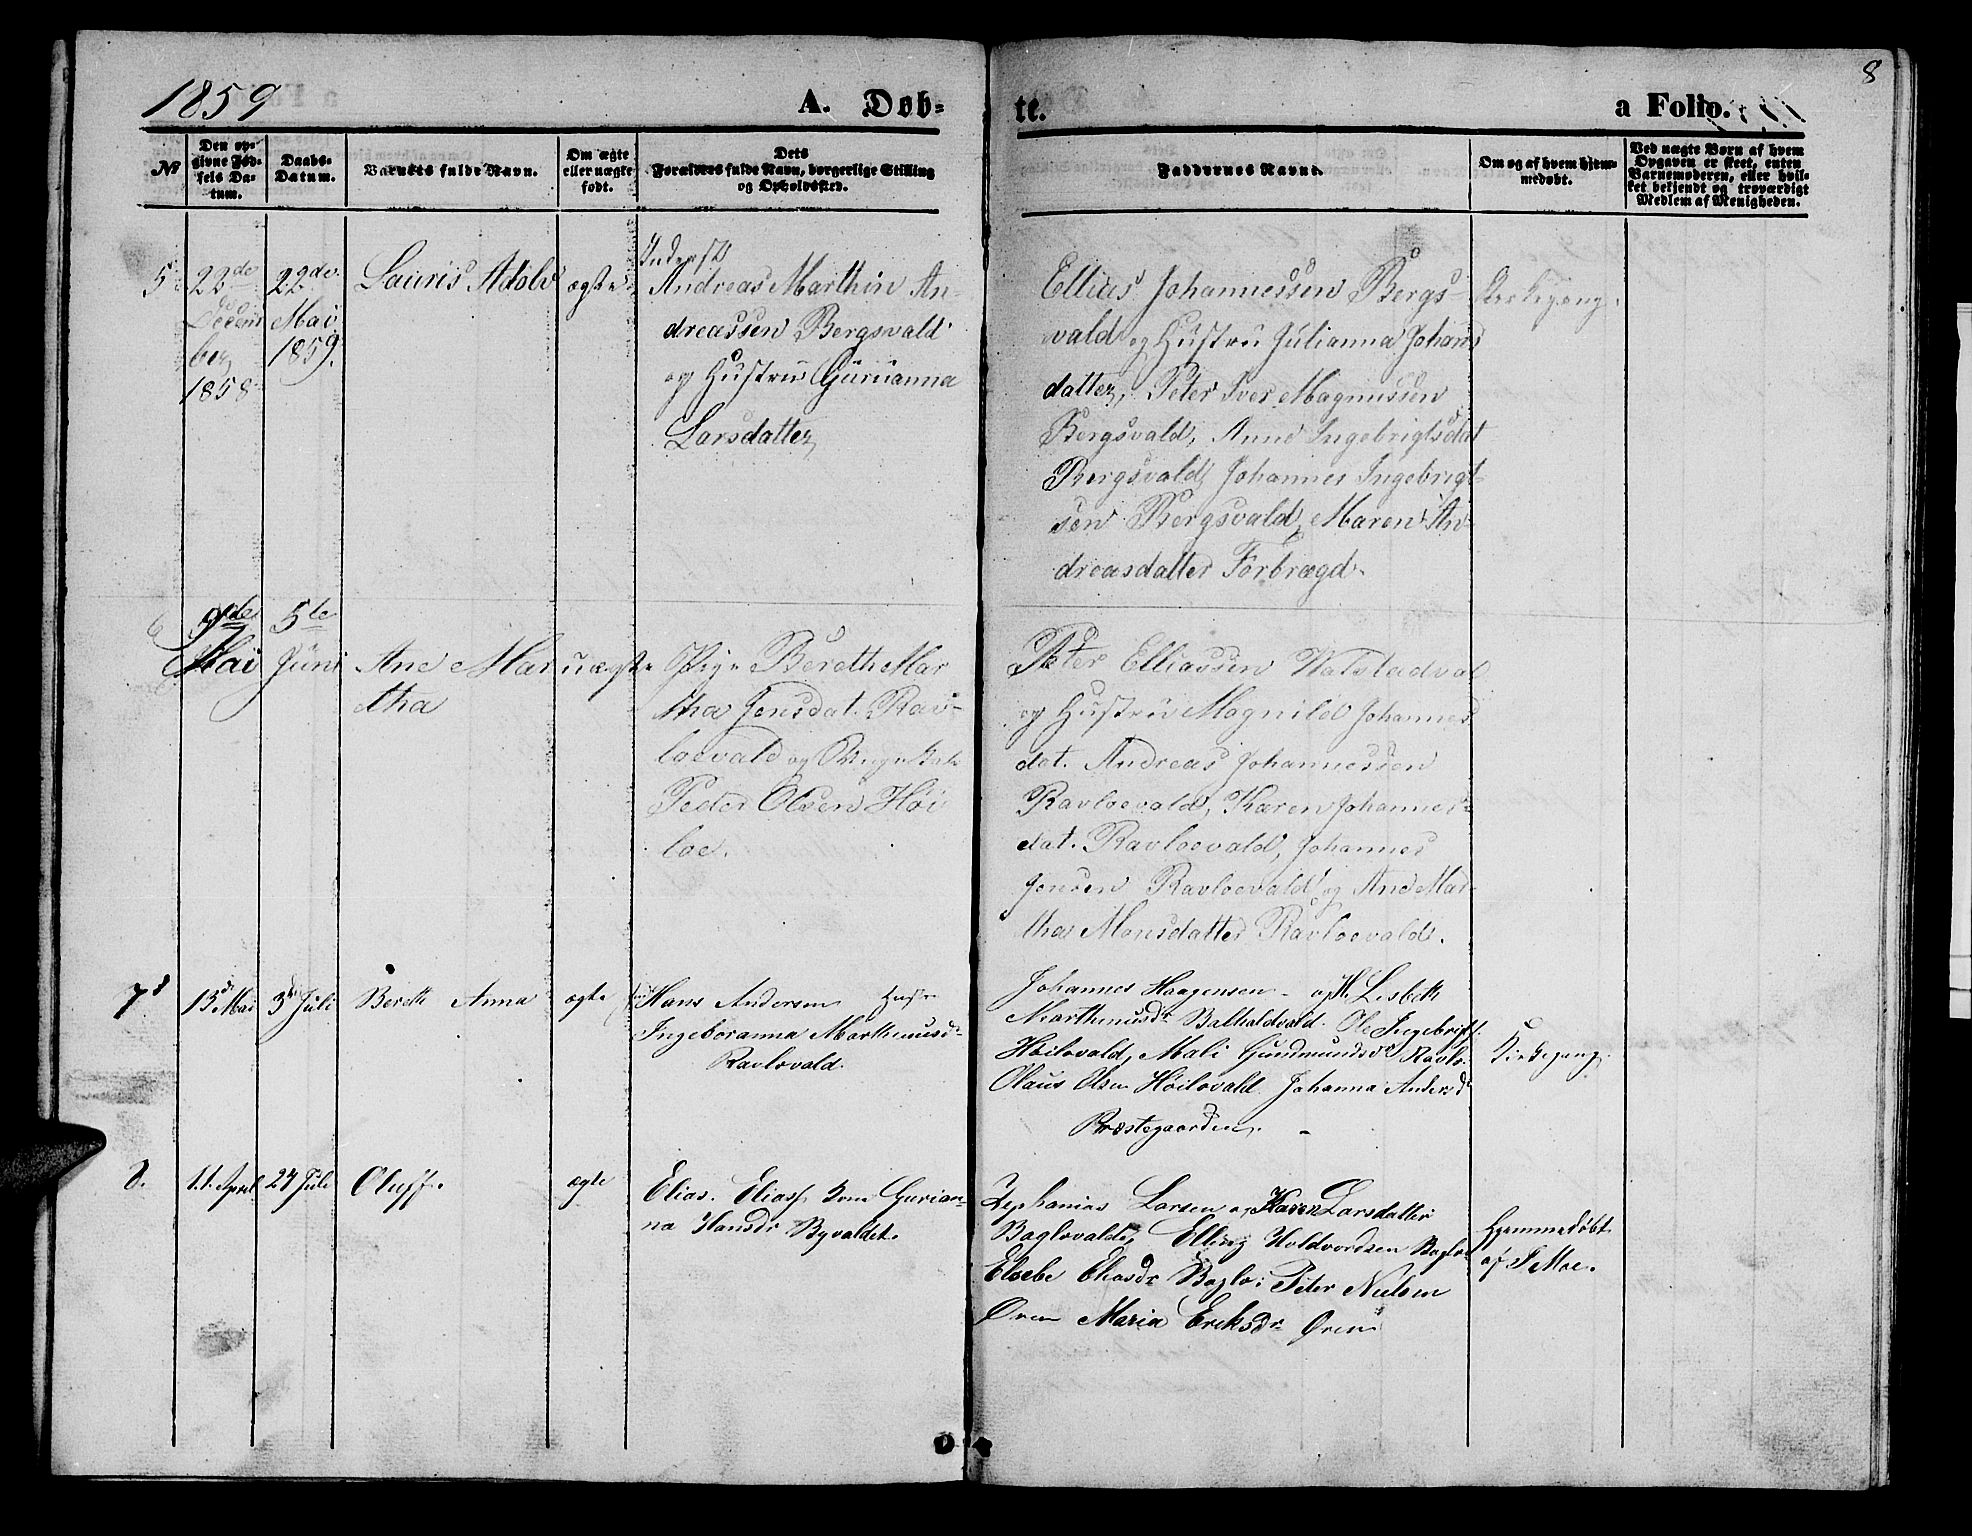 1859 A. Døb- te. a Folio. 8
№
Den op-
givne Fød-
sels Da-
tum.
Daabs-
Datum.
Barnets fulde Navn.
Om ægte
eller uægte
født.
Dets
Forældres fulde Navn, borgerlige Stilling
og Opholdssted.
Faddernes Navne.
Om og af hvem hjem-
medøbt.
Ved uægte Børn af hvem
Opgaven er skeet, enten
Barnemoderen, eller hvil-
ket bekjendt og troværdigt
Medlem af Menigheden.
5
22de
Decem
ber
1858
22de
Mai
1859.
Lauris Adolv
ægte
Inderst
Andreas Marthin An-
dreassen Bergsvald
og Hustru Gurianna
Larsdatter
Ellias Johannessen Bergs-
vald og Hustru Julianna Johans
datter, Peter Iver Magnussen
Bergsvald, Anne Ingebrigtsdat
Bergsvald, Johannes Ingebrigt-
sen Bergsvald, Maren An-
dreasdatter Forbrægd.
Kirkegang.
6
9de
Mai
5te
Juni
Ane Mar
tha
uægte
Pige Bereth Mar
tha Jonsdat. Rav-
loevald og Ungkarl
Peter Olsen Høi
loe.
Peter Elliassen Valstadval
og Hustru Magnild Johannes
dat. Andreas Johannessen
Ravloevald, Karen Johannes-
dat. Ravloevald, Johannes
Jonsen Ravloevald og Ane Mar-
tha Monsdatter Ravloevald.
7
13 Mai
3de Juli
Bereth Anna
ægte
Hans Andersen Hustr
Ingeboranna Marthinusd.
Ravlovald.
Johannes Haagensen og H. Lisbeth
Marthinusdr Balhaldvald. Ole Ingebrigts.
Høilovald, Mali Gundmundsdr Ravlo.
Olaus Olsen Høilovald. Johanna Andersd
Præstegaarden.
Kirkegang.
8.
11. April
24 Juli
Oluff.
ægte
Elias. Eliass Kone Gurian-
na Hansdr Byvaldet.
Zephanias Larsen og Karen Larsdatter
Baglovald, Elling Holdvordsen Baglo
Elsebe Eliasdr Baglo; Peter Nielsen
Øren Maria Eriksdr Øren
Hjemmedøbt
af J Moe.